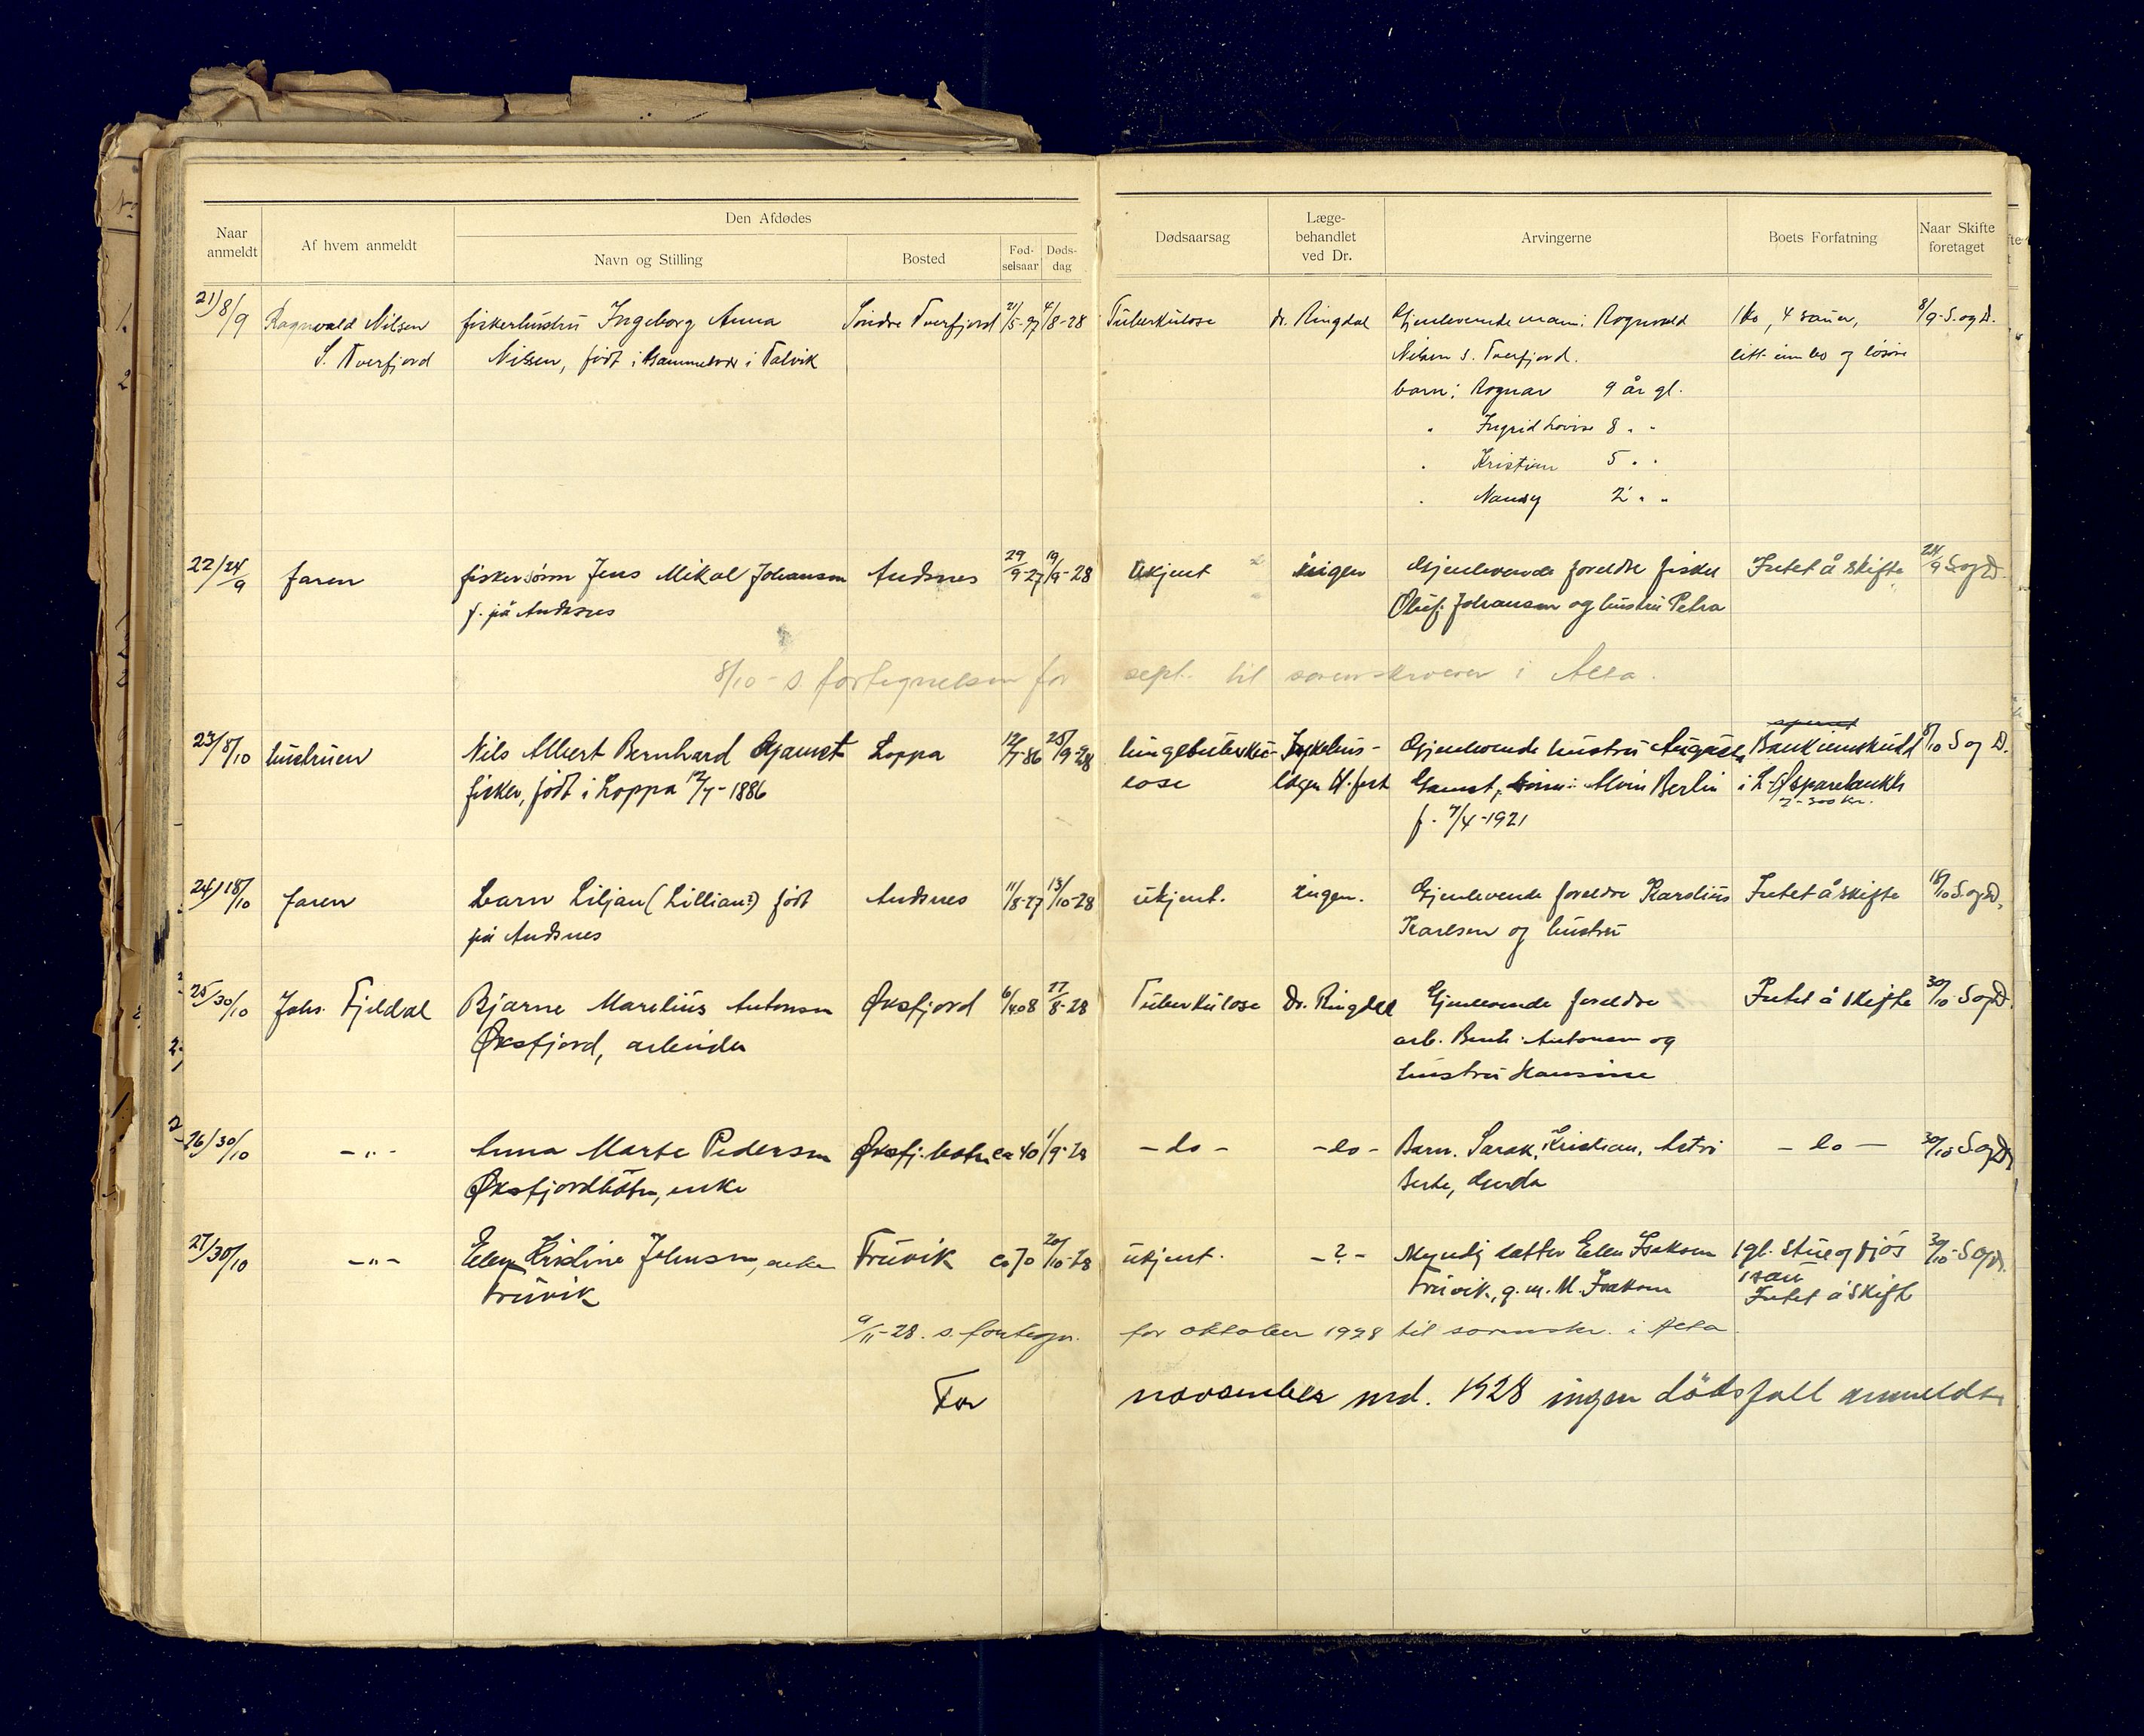 Den Afdødes
Naar anmeldt
Af hvem anmeldt
Navn og Stilling
Bosted
Fød-selsaar
Døds-dag
Dødsaarsag
Læge-behandlet ved Dr.
Arvingerne
Boets Forfatning
Naar Skifte foretaget
21) 8/9 Ragnvald Nilsen fiskerhustru Ingeborg Anna Söndre Tverfjord 21/5-97 4/8-28 Tuberkulose dr. Ringdal Gjenlevende mann: Ragnvald 1 ko, 4 sauer, 8/9-S.og D.
S. Tverfjord Nilsen, født i i Talvik Nilsen S. Tverfjord. litt innbo og løsøre
barn: Ragnar 9 år gl.
" Ingrid Lovise 8 " "
" Kristian 5 " "
" Nansy 2 " "
22/ 24/9 faren fiskersønn Jens Mikal Johansen Andsnes 29/9-27 19/9-28 Ukjent ingen Gjenlevende foreldre fisker Intet å skifte 24/9 S.og D.
f. på Andsnes Oluf Johansen og hustru Petra
8/10- s. fortegnelsen for sept. til sorenskriveren i Alta.
23/ 8/10 hustruen Nils Albert Bernhard Gamst Loppa 12/7-86 25/9-28 lungetuberku- Sykehus- Gjenlevende hustru Bankinnskudd 8/10 S og D.
lose lægen H.fest Gamst, Alvin Berlin i sparebank
fisker, født i Loppa 12/7-1886 300 kr.
f. 7/4-1921
24) 18/10 faren barn Liljan (Lillian?) født Andsnes 11/8-27 13/10-28 ukjent. ingen. Gjenlevende foreldre Karolius Intet å skifte 18/10 S.og D.
på Andsnes Karlsen og hustru
25/ 30/10 Johs. Fjeldal Bjarne Marelius Antonsen Øksfjord 6/4 08 27/8-28 Tuberkulose Dr. Ringdal Gjenlevende foreldre Intet å skifte 30/10-S og D.
Øksfjord, arbeider arb. Antonsen og
hustru Hansine
26/ 30/10 -"- Anna Marte Pedersen Øksfj.botn ca 40 1/9-28 -do- -do- Barn. Sarak, Kristian, -do- 30/10 S og D
Øksfjordbotn, enke Berte, Gerda
27/ 30/10 -"- Ellen Kristine Johnsen, enke Fruvik ca 70 20/10-28 ukjent. -?- Myndig datter Ellen Isaksen 1 gl. stue og fjøs 30/10-S og D.
Fruvik Fruvik, g.m. M. Isaksen 1 sau
Intet å skifte
9/11-28. s. fortegn. for oktober 1928 til sorenskr. i Alta.
For november md. 1928 ingen dödsfall anmeldt